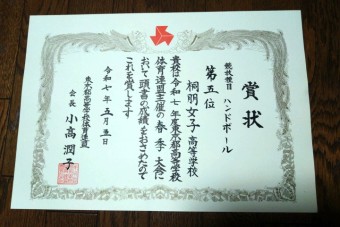 賞状
競技種目 ハンドボール
第五位
桐朋女子高等学校
貴校は令和七年度東京都高等学校
体育連盟主催の春季大会に
おいて頭書の成績をおさめたので
これを賞します
令和七年五月五日
東京都高等学校体育連盟
会長 小高潤子